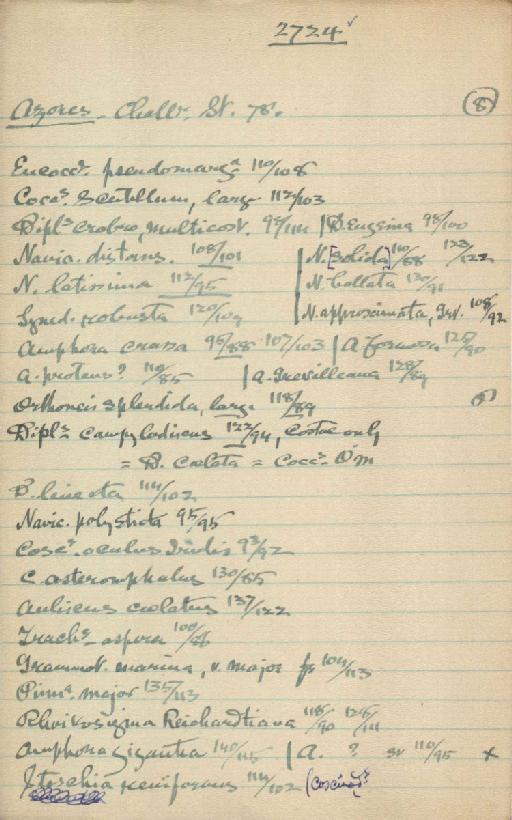 2724
Azores - Challr. St. 78. 8
pseudomarga 110/108
Cocc. Scutellum, large 112/103
Dipl. crabro, multicost. 98/111 | D. Eugenia 98/100
Navic. distans. 108/101 | N. [solida] 110/88 122/122
N. latissima 112/95 | N. bullata 120/91
Syned. robusta 120/104 | N. approximata, 108/92
Amphora crassa 96/88 107/103 | A. formosa 125/90
A. proteus? 110/85 | A. Grevilleana 128/89
Orthoneis splendida, large 118/89
Dipl. Campylodiscus 122/94, costae only
= D. coelata = Cocc. O'm
D. lineata 114/102
Navic. polysticta 95/95
Cosc. oculus Iridis 93/92
C. asteromphalus 130/85
Auliscus coelatus 137/122
Trach. aspera 100/88
Grammat. marina, v. major fr 104/113
Pinn. major 135/113
Rhoikosigma Reichardtiana 118/90 128/111
Amphora gigantea 140/115 | A. ? sv 110/95 x
reniformis 114/102 (Coscinod?